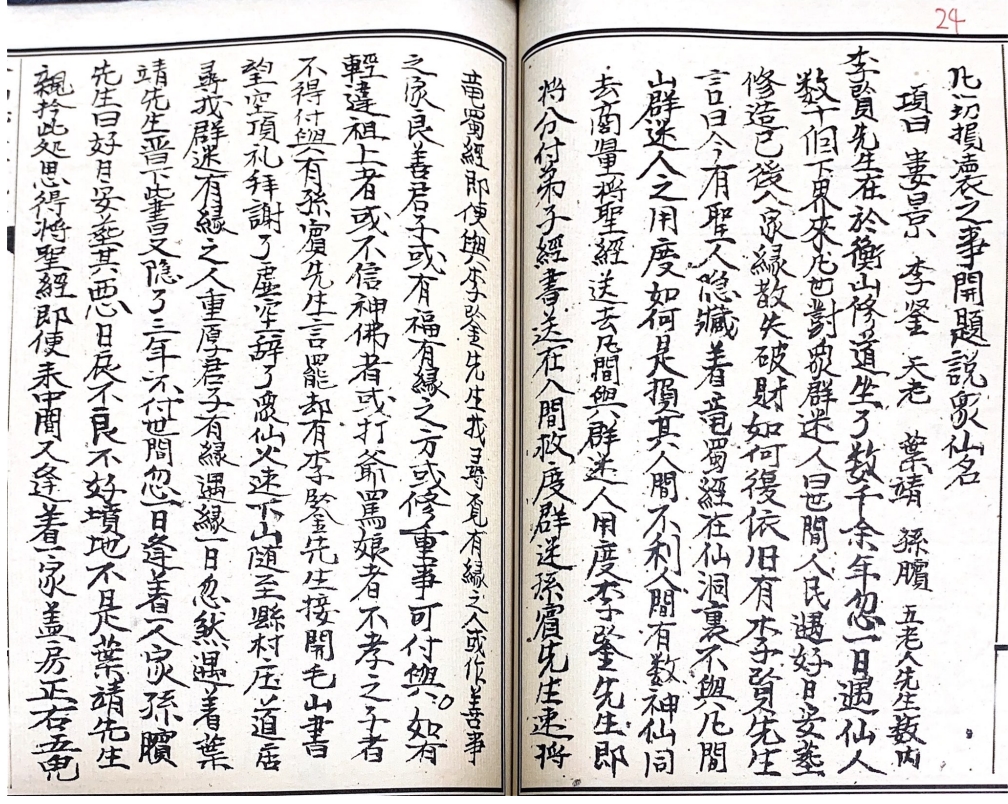 24
凡一切損壞之事開題説衆仙名
項曰 婁景 李鋻 天老 葉靖 孫臏 五老人先生数内
李賓先生在於衡山修道坐了数千余年忽一日遇仙人
数十個下界來凡世對衆群迷人曰世間人民遇好日安葬
修造已後人家緣散失破財如何復依旧有李賓先生
言曰今有聖人隐藏着竜蜀經在仙洞裏不與凡間
山群迷人之用度如何是損其人間不利人間有数神仙同
去商量將聖經送去凡間與群迷人用度李鋻先生即
將分付弟子經書送在人間救度群迷孫賓先生速將
竜蜀經即便與李鋻先生找尋覓有緣之人或作善事
之家良善君子或有福有緣之方或修重事可付與如有
輕違祖上者或不信神佛者或打爺罵娘者不孝之子者
不得付與有孫賓先生言罷却有李鋻先生接開毛山書
望空頂礼拜謝了虚空辞了衆仙火速下山隨至縣村庄道店
尋找群迷有緣之人重厚君子有緣遇緣一日忽然遇着葉
靖先生晋下此書又隐了三年不付世間忽一日逢着一人家孫臏
先生曰好月安葬其恶日辰不良不好墳地不是葉靖先生
親拎此処思得將聖經即便来中間又逢着一家盖房正右五鬼